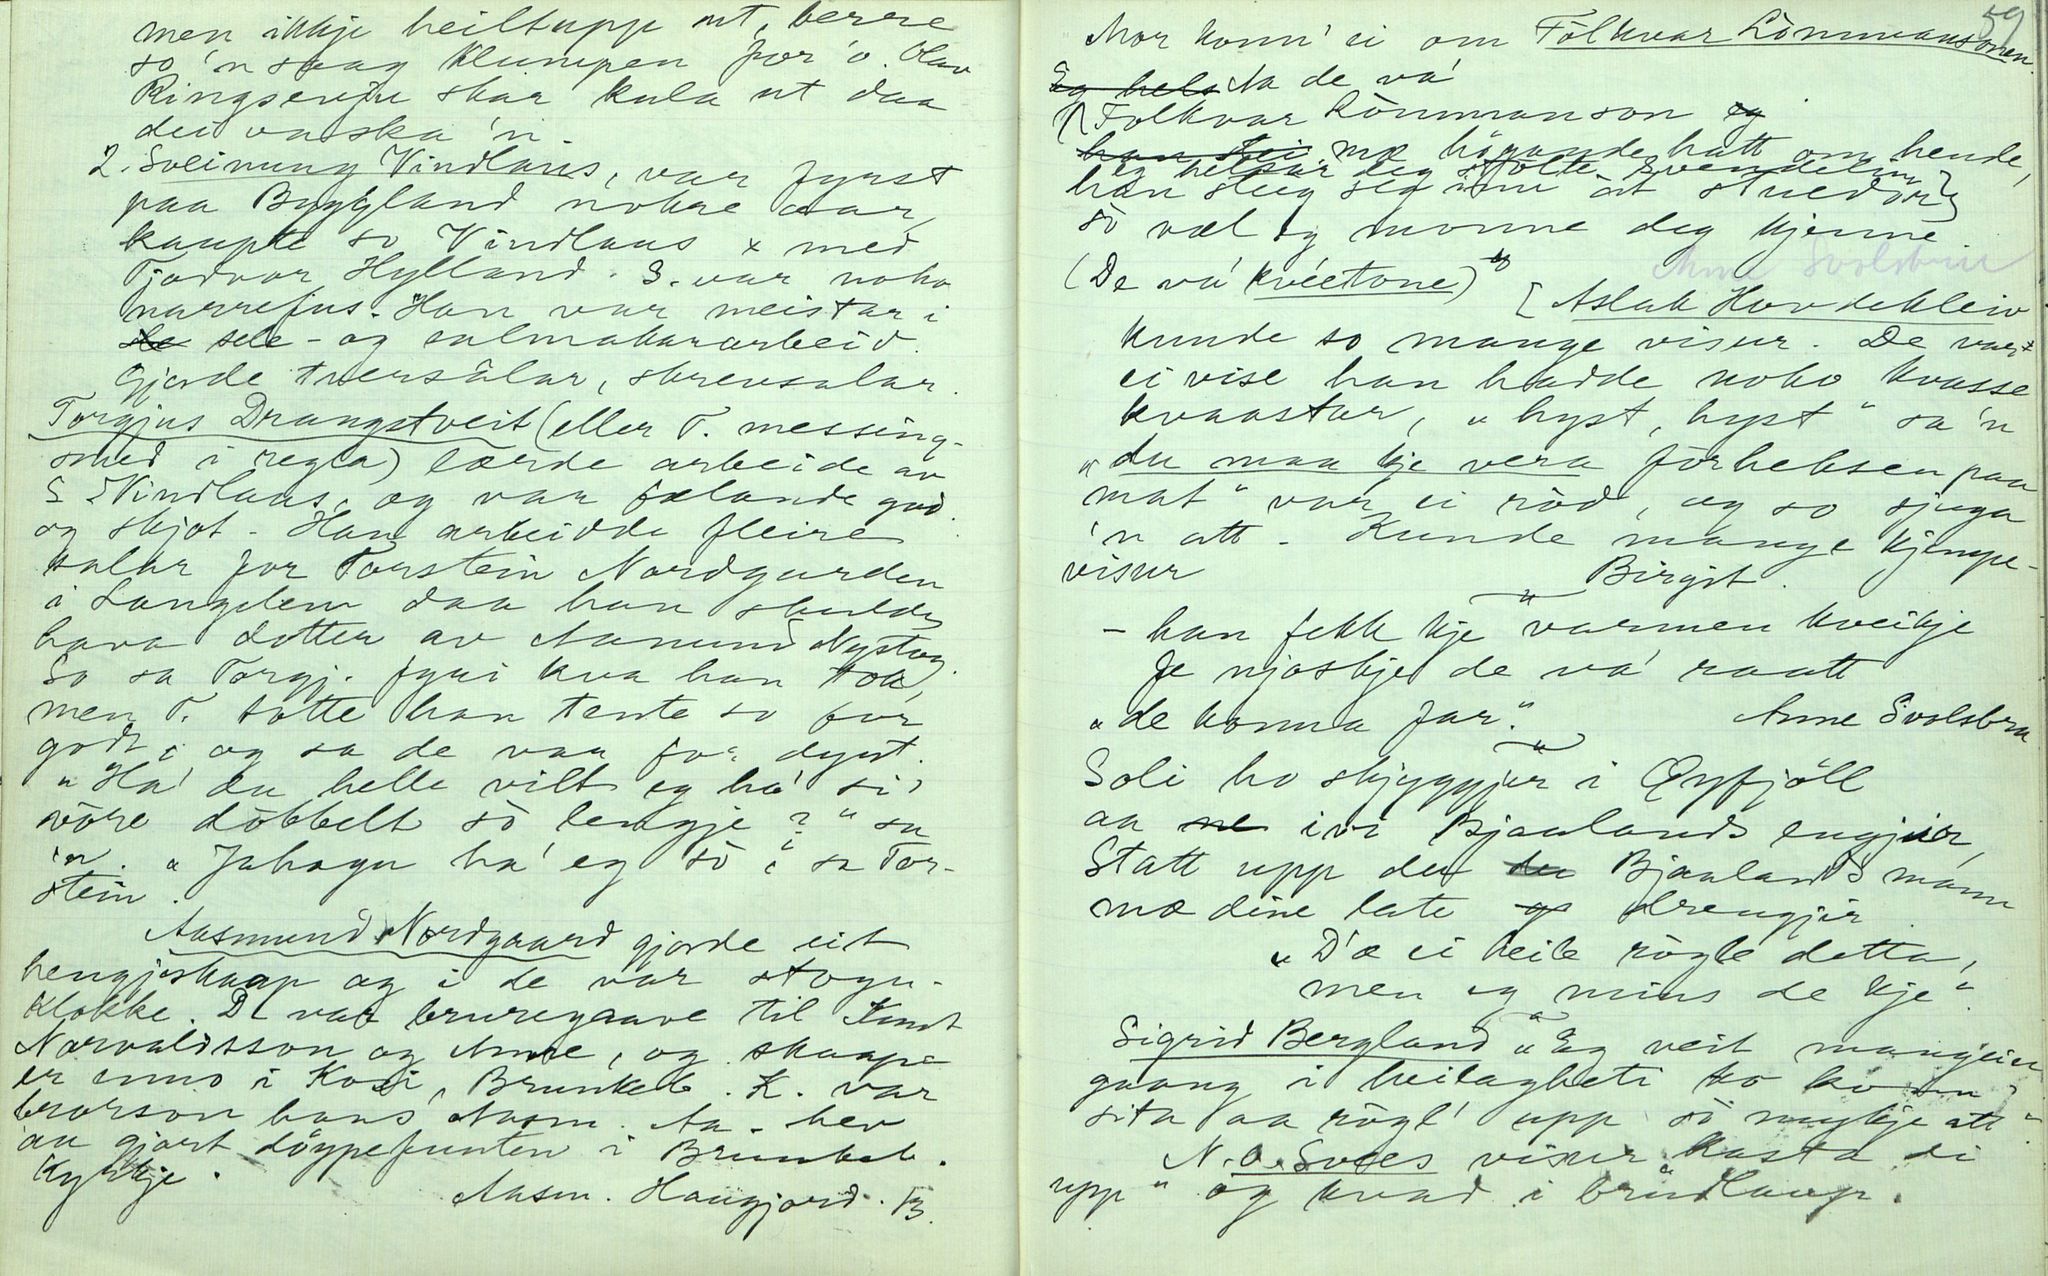 men ikkje heiltupp ut, berre
so 'n saag klumpen for 'o. Olav
Ringserfin skar kula ut daa
dei vaska 'n.
2. Sveinung Vindlaus, var fyrst
paa Byggland nokre aar,
kaupte so Vindlaus x med
Tjodvor Hylland. S. var noko
narrefus. Han var meistar i
sele- og salmakararbeid.
Gjorde tversålar, skrevsalar.
Torgjus Drangstveit (eller T. messing-
smed i regla) lærde arbeide av
S Vindlaus, og var fælande god
og skjot. Han arbeidde fleire
salar for Torstein Nordgarden
i Langelem daa han skulde
hava dotter av Aanund Nystog.
So sa Torgj. fyri kva han tok,
men T. totte han tente so for
godt, og sa de var for dyrt.
"Ha' du helle vilt eg ha' si'
vôre dôbbelt sò lengje?" sa
'n. "Jahagu ha' eg sò", sa Tor-
stein.
Aasmund Nordgaard gjorde eit
hengjeskaap og i de var stogu-
klokke. D. var bruregaave til Knut
Norvaldsson og Anne, og skaape
er enno i Kosi, Brunkeb. K. var
brorson hans Aasm. Aa. hev
au gjort döypefunten i Brunkeb.
Kyrkje.
Aasm. Haugjord. B.
59
Mor konn' ei om Fölkvar Lömmansonen.
Eg hels Aa de va'
Folkvar Lömmanson og
han stei mæ högande hatt om hende,
eg helsar deg stolte Svendelin
han steig seg inn åt stuedör
sò væl eg monne deg kjenne.
(De va' kvéetone)
Anne Svolsbru
[Aslak Hovdekleiv
kunde so mange visur. De var
ei vise han hadde noko kvasse
kvaastar, "hyst, hyst" sa 'n
"du maa kje vera forhehsen paa
mat" var ei röd, og so sjuga
'n att. Kunde mange kjempe-
visur
Birgit.
- han fekk kje varmen kveikje
fe njoskje de va' raatt
"de konna far".
Anne Svolsbru
Soli ho skjyggjer i Öyfjöll
aa ne ivi Bjaalands engjier,
Statt upp du du Bjaalands mann
mæ dine late og drengjir
"D'æ ei heile rògle detta,
men eg mins de kje"
Sigrid Bergland "Eg veit mangein
gaang i heilagheti ho ho
sita aa rògl' upp sò mykje att"
N. O. Svees visur "kasta dei
upp" og kvad i brudlaup.